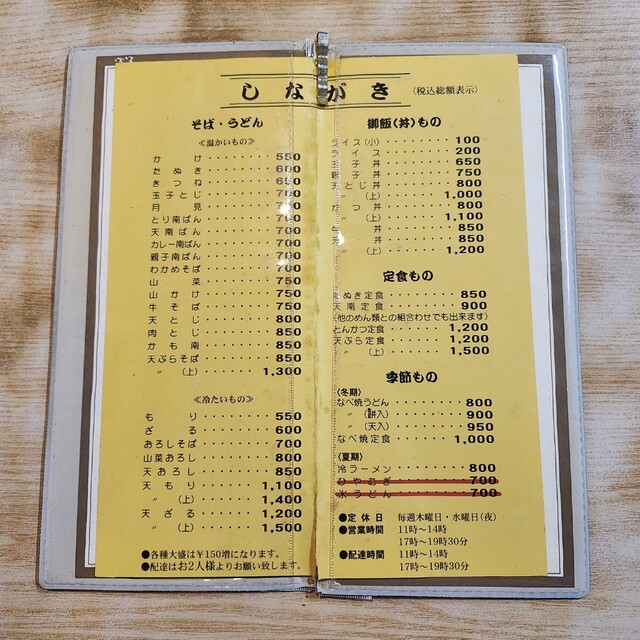 しながき (税込総額表示)
そば・うどん
≪温かいもの≫
かけ 550
たぬき 600
きつね 650
玉子とじ 700
月見 700
とり南ばん 700
天南ばん 700
カレー南ばん 700
親子南ばん 700
わかめそば 700
山菜 750
山かけ 750
牛そば 750
天とじ 800
肉とじ 850
かも南 850
天ぷらそば 850
〃 (上) 1,300
≪冷たいもの≫
もり 550
ざる 600
おろしそば 700
山菜おろし 800
天おろし 850
天もり 1,100
〃 (上) 1,400
天ざる 1,200
〃 (上) 1,500
●各種大盛は¥150増になります。
●配達はお2人様よりお願い致します。
御飯(丼)もの
ライス(小) 100
ライス 200
玉子丼 650
親子丼 750
天とじ丼 800
〃 (上) 1,000
かつ丼 800
〃 (上) 1,100
牛丼 850
天丼 850
〃 (上) 1,200
定食もの
たぬき定食 850
天南定食 900
(他のめん類との組合わせでも出来ます)
とんかつ定食 1,200
天ぷら定食 1,200
〃 (上) 1,500
季節もの
〈冬期〉
なべ焼うどん 800
〃 (餅入) 900
〃 (天入) 950
なべ焼定食 1,000
〈夏期〉
冷ラーメン 800
ひやむぎ 700
氷うどん 700
●定休日 毎週木曜日・水曜日(夜)
●営業時間 11時～14時
17時～19時30分
●配達時間 11時～14時
17時～19時30分